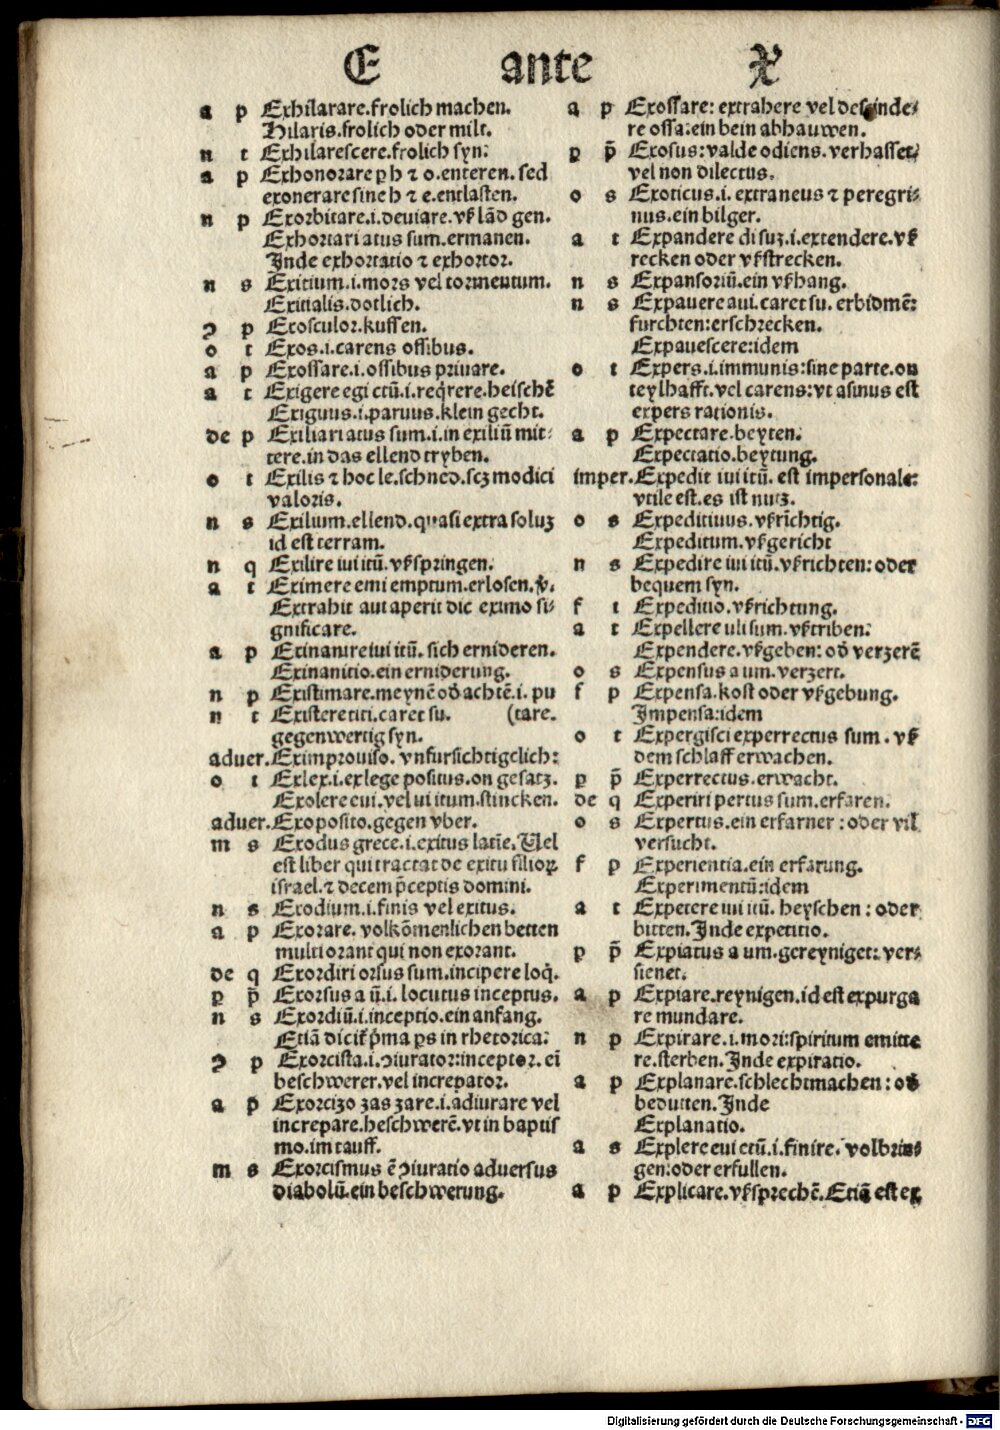 E ante X
a p Exhilarare.frolich machen.
Hilaris.frolich oder milt.
n t Exhilarescere.frolich syn:
a p Exhonorare ꝑ h ⁊ o.enteren.sed
exonerare sine h ⁊ e.entlasten.
n p Exorbitare.i.deuiare.vß lād gen.
Exhortari atus sum.ermanen.
Inde exhortatio ⁊ exhortor.
n s Exitium.i.mors vel tormentum.
Exitialis.dotlich.
ꝯ p Exosculor.kussen.
o t Exos.i.carens ossibus.
a p Exossare.i.ossibus priuare.
a t Exigere egi ctū.i.reqͥrere.heischē
Exiguus.i.paruus.klein gecht.
de p Exiliari atus sum.i.in exiliū mit⸗
tere.in das ellend tryben.
o t Exilis ⁊ hoc le.schnod.scꝫ modici
valoris.
n s Exilium.ellend.quasi extra soluꝫ
id est terram.
n q Exilire iui itū.vßspringen.
a t Eximere emi emptum.erlosen.ꝟ.
Extrahit aut aperit dic eximo si⸗
gnificare.
a p Exinanire iui itū.sich ernideren.
Exinanitio.ein erniderung.
n p Existimare.meynē od̕ achtē.i.pu
n t Existere titi.caret su. (tare.
gegenwertig syn.
aduer.Eximprouiso.vnfursichtigclich:
o t Exlex.i.exlege positus.on gesatz.
Exolere eui.vel ui itum.stincken.
aduer.Exoposito.gegen vber.
m s Exodus grece.i.exitus latīe.Uel
est liber qui tractat de exitu filioꝝ
israel.⁊ decem p̄ceptis domini.
n s Exodium.i.finis vel exitus.
a p Exorare.volkōmenlichen betten
multi orant qui non exorant.
de q Exordiri orsus sum.incipere loq̄.
ꝑ p̄ Exorsus a ū.i.locutus inceptus.
n s Exordiū.i.inceptio.ein anfang.
Etiā dicit̕ pͥma ꝑs in rhetorica:
ꝯ p Exorcista.i.ꝯiurator:inceptor.eī
beschwerer.vel increpator.
a p Exorcizo zas zare.i.adiurare vel
increpare.beschwerē.vt in baptis
mo.im tauff.
m s Exorcismus ē ꝯiuratio aduersus
diabolū.ein beschwerung.
a p Exossare: extrahere vel descinde⸗
re ossa:ein bein abhauwen.
ꝑ p̄ Exosus:valde odiens.verhasset⸗
vel non dilectus.
o s Exoticus.i.extraneus ⁊ peregri⸗
nus.ein bilger.
a t Expandere di suꝫ.i.extendere.vß
recken oder vßstrecken.
n s Expansoriū.ein vßhang.
n s Expauere aui.caret su.erbidmē:
furchten:erschrecken.
Expauescere:idem
o t Expers.i.immunis:sine parte.on
teylhafft.vel carens:vt asinus est
expers rationis.
a p Expectare.beyten:
Expectatio.beytung.
imper.Expedit iui itū.est impersonale:
vtile est.es ist nutz.
o s Expeditiuus.vßrīchtig.
Expeditum.vßgericht
n s Expedire iui itū.vßrichten:oder
bequem syn.
f t Expeditio.vßrichtung.
a t Expellere uli sum.vßtriben:
Expendere.vßgeben:od̕ verzerē
o s Expensus a um.verzert.
f p Expensa.kost oder vßgebung.
Impensa:idem
o t Expergisci experrectus sum.vß
dem schlaff erwachen.
ꝑ p̄ Experrectus.erwacht.
de q Experiri pertus sum.erfaren.
o s Expertus.ein erfarner:oder vil
versucht.
f p Experientia.ein erfarung.
Experimentū:idem
a t Expetere iui itū.heyschen:oder
bitten.Inde expetitio.
p p̄ Expiatus a um.gereyniget:ver⸗
sienet.
a p Expiare.reynigen.id est expurga
re mundare.
n p Expirare.i.mori:spiritum emitte
re.sterben.Inde expiratio.
a p Explanare.schlechtmachen:od̕
bedutten.Inde
Explanatio.
a s Explere eui ctū.i.finire.volbrin⸗
gen:oder erfullen.
a p Explicare.vßsprechē.Etiā est ex
Digitalisierung gefördert durch die Deutsche Forschungsgemeinschaft - DFG